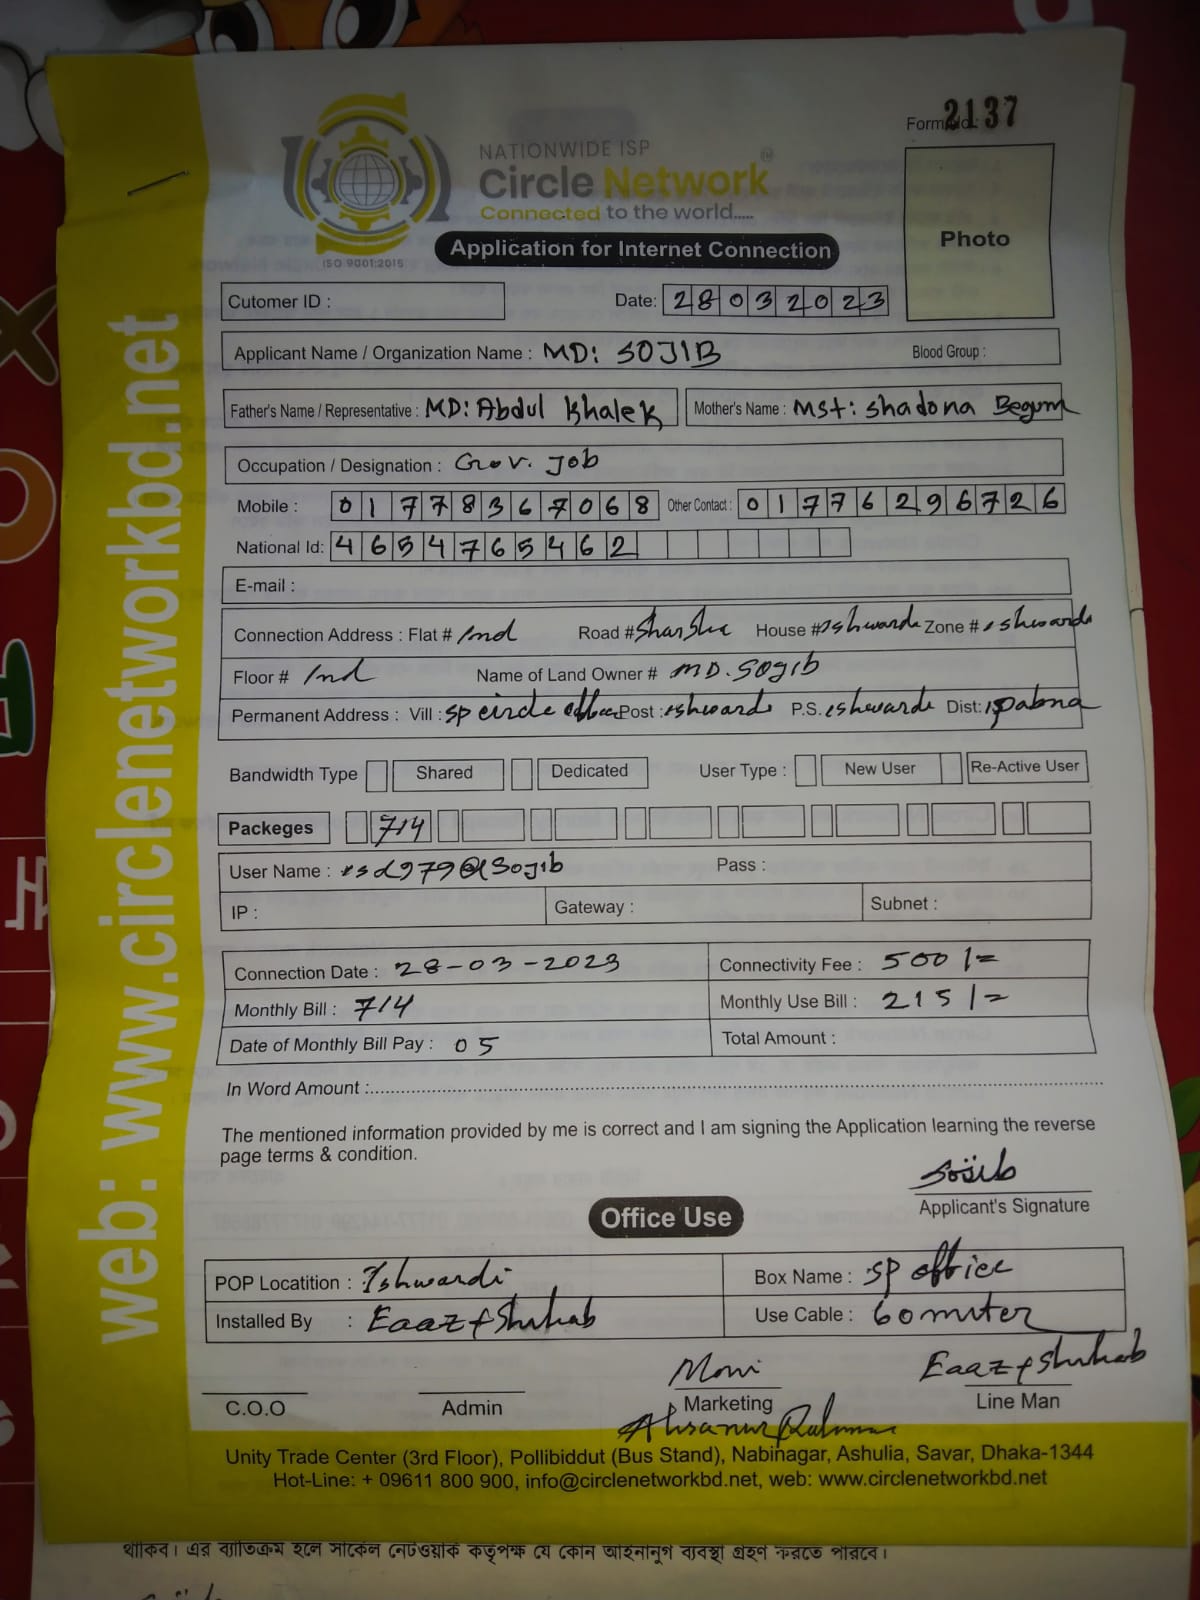 Form No.: 2137
NATIONWIDE ISP
Circle Network
Connected to the world.....
ISO 9001:2015
Application for Internet Connection
Photo
Cutomer ID :
Date: 28032023
Applicant Name / Organization Name : MD: SOJIB Blood Group :
Father's Name / Representative : MD: Abdul Khalek Mother's Name : Mst: Shadona Begum
Occupation / Designation : Gov. Job
Mobile : 01778367068 Other Contact : 01776296726
National Id: 4654765462
E-mail :
Connection Address : Flat # Road # House # Zone #
Floor # Name of Land Owner # MD. Sojib
Permanent Address : Vill : SP circle office Post : eshwardi P.S. eshwardi Dist: pabna
Bandwidth Type Shared Dedicated User Type : New User Re-Active User
Packeges 714
User Name : Pass :
IP : Gateway : Subnet :
Connection Date : 28-03-2023 Connectivity Fee : 500/=
Monthly Bill : 714 Monthly Use Bill : 215/=
Date of Monthly Bill Pay : 05 Total Amount :
In Word Amount :
The mentioned information provided by me is correct and I am signing the Application learning the reverse
page terms & condition.
Sojib
Applicant's Signature
Office Use
POP Locatition : Ishwardi Box Name : SP office
Installed By : Eaaz + Shihab Use Cable : 60 miter
Moni Eaaz + Shihab
C.O.O Admin Marketing Line Man
Ahsanur Rahman
Unity Trade Center (3rd Floor), Pollibiddut (Bus Stand), Nabinagar, Ashulia, Savar, Dhaka-1344
Hot-Line: + 09611 800 900, info@circlenetworkbd.net, web: www.circlenetworkbd.net
web: www.circlenetworkbd.net
থাকিব। এর ব্যতিক্রম হলে সার্কেল নেটওয়ার্ক কর্তৃপক্ষ যে কোন আইনানুগ ব্যবস্থা গ্রহণ করতে পারবে।